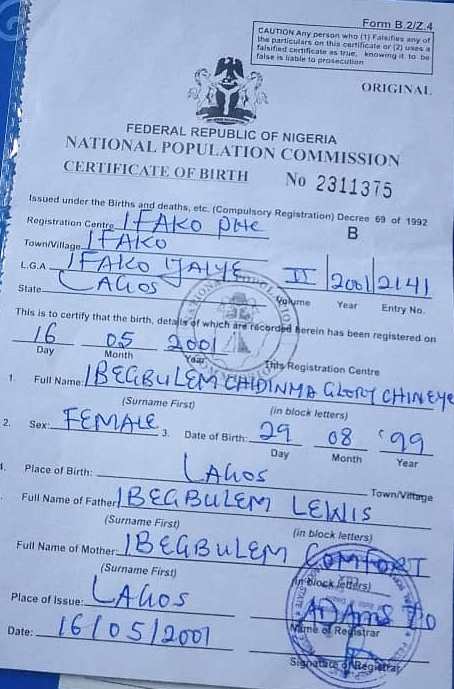 Form B.2/Z.4
CAUTION Any person who (1) Falsifies any of
the particulars on this certificate or (2) uses a
falsified certificate as true, knowing it to be
false is liable to prosecution
ORIGINAL
FEDERAL REPUBLIC OF NIGERIA
NATIONAL POPULATION COMMISSION
CERTIFICATE OF BIRTH No 2311375
Issued under the Births and deaths, etc. (Compulsory Registration) Decree 69 of 1992
Registration Centre IFAKO PHC B
Town/Village IFAKO
L.G.A IFAKO IJAIYE II 2001 2141
State LAGOS Volume Year Entry No.
This is to certify that the birth, details of which are recorded herein has been registered on
16 05 2001
Day Month Year This Registration Centre
1. Full Name: IBEGBULEM CHIDINMA GLORY CHINEYE
(Surname First) (in block letters)
2. Sex: FEMALE 3. Date of Birth: 29 08 '99
Day Month Year
4. Place of Birth: LAGOS Town/Village
Full Name of Father IBEGBULEM LEWIS
(Surname First) (in block letters)
Full Name of Mother IBEGBULEM COMFORT
(Surname First) (in block letters)
Place of Issue: LAGOS ADAMS
Name of Registrar
Date: 16/05/2001
Signature of Registrar